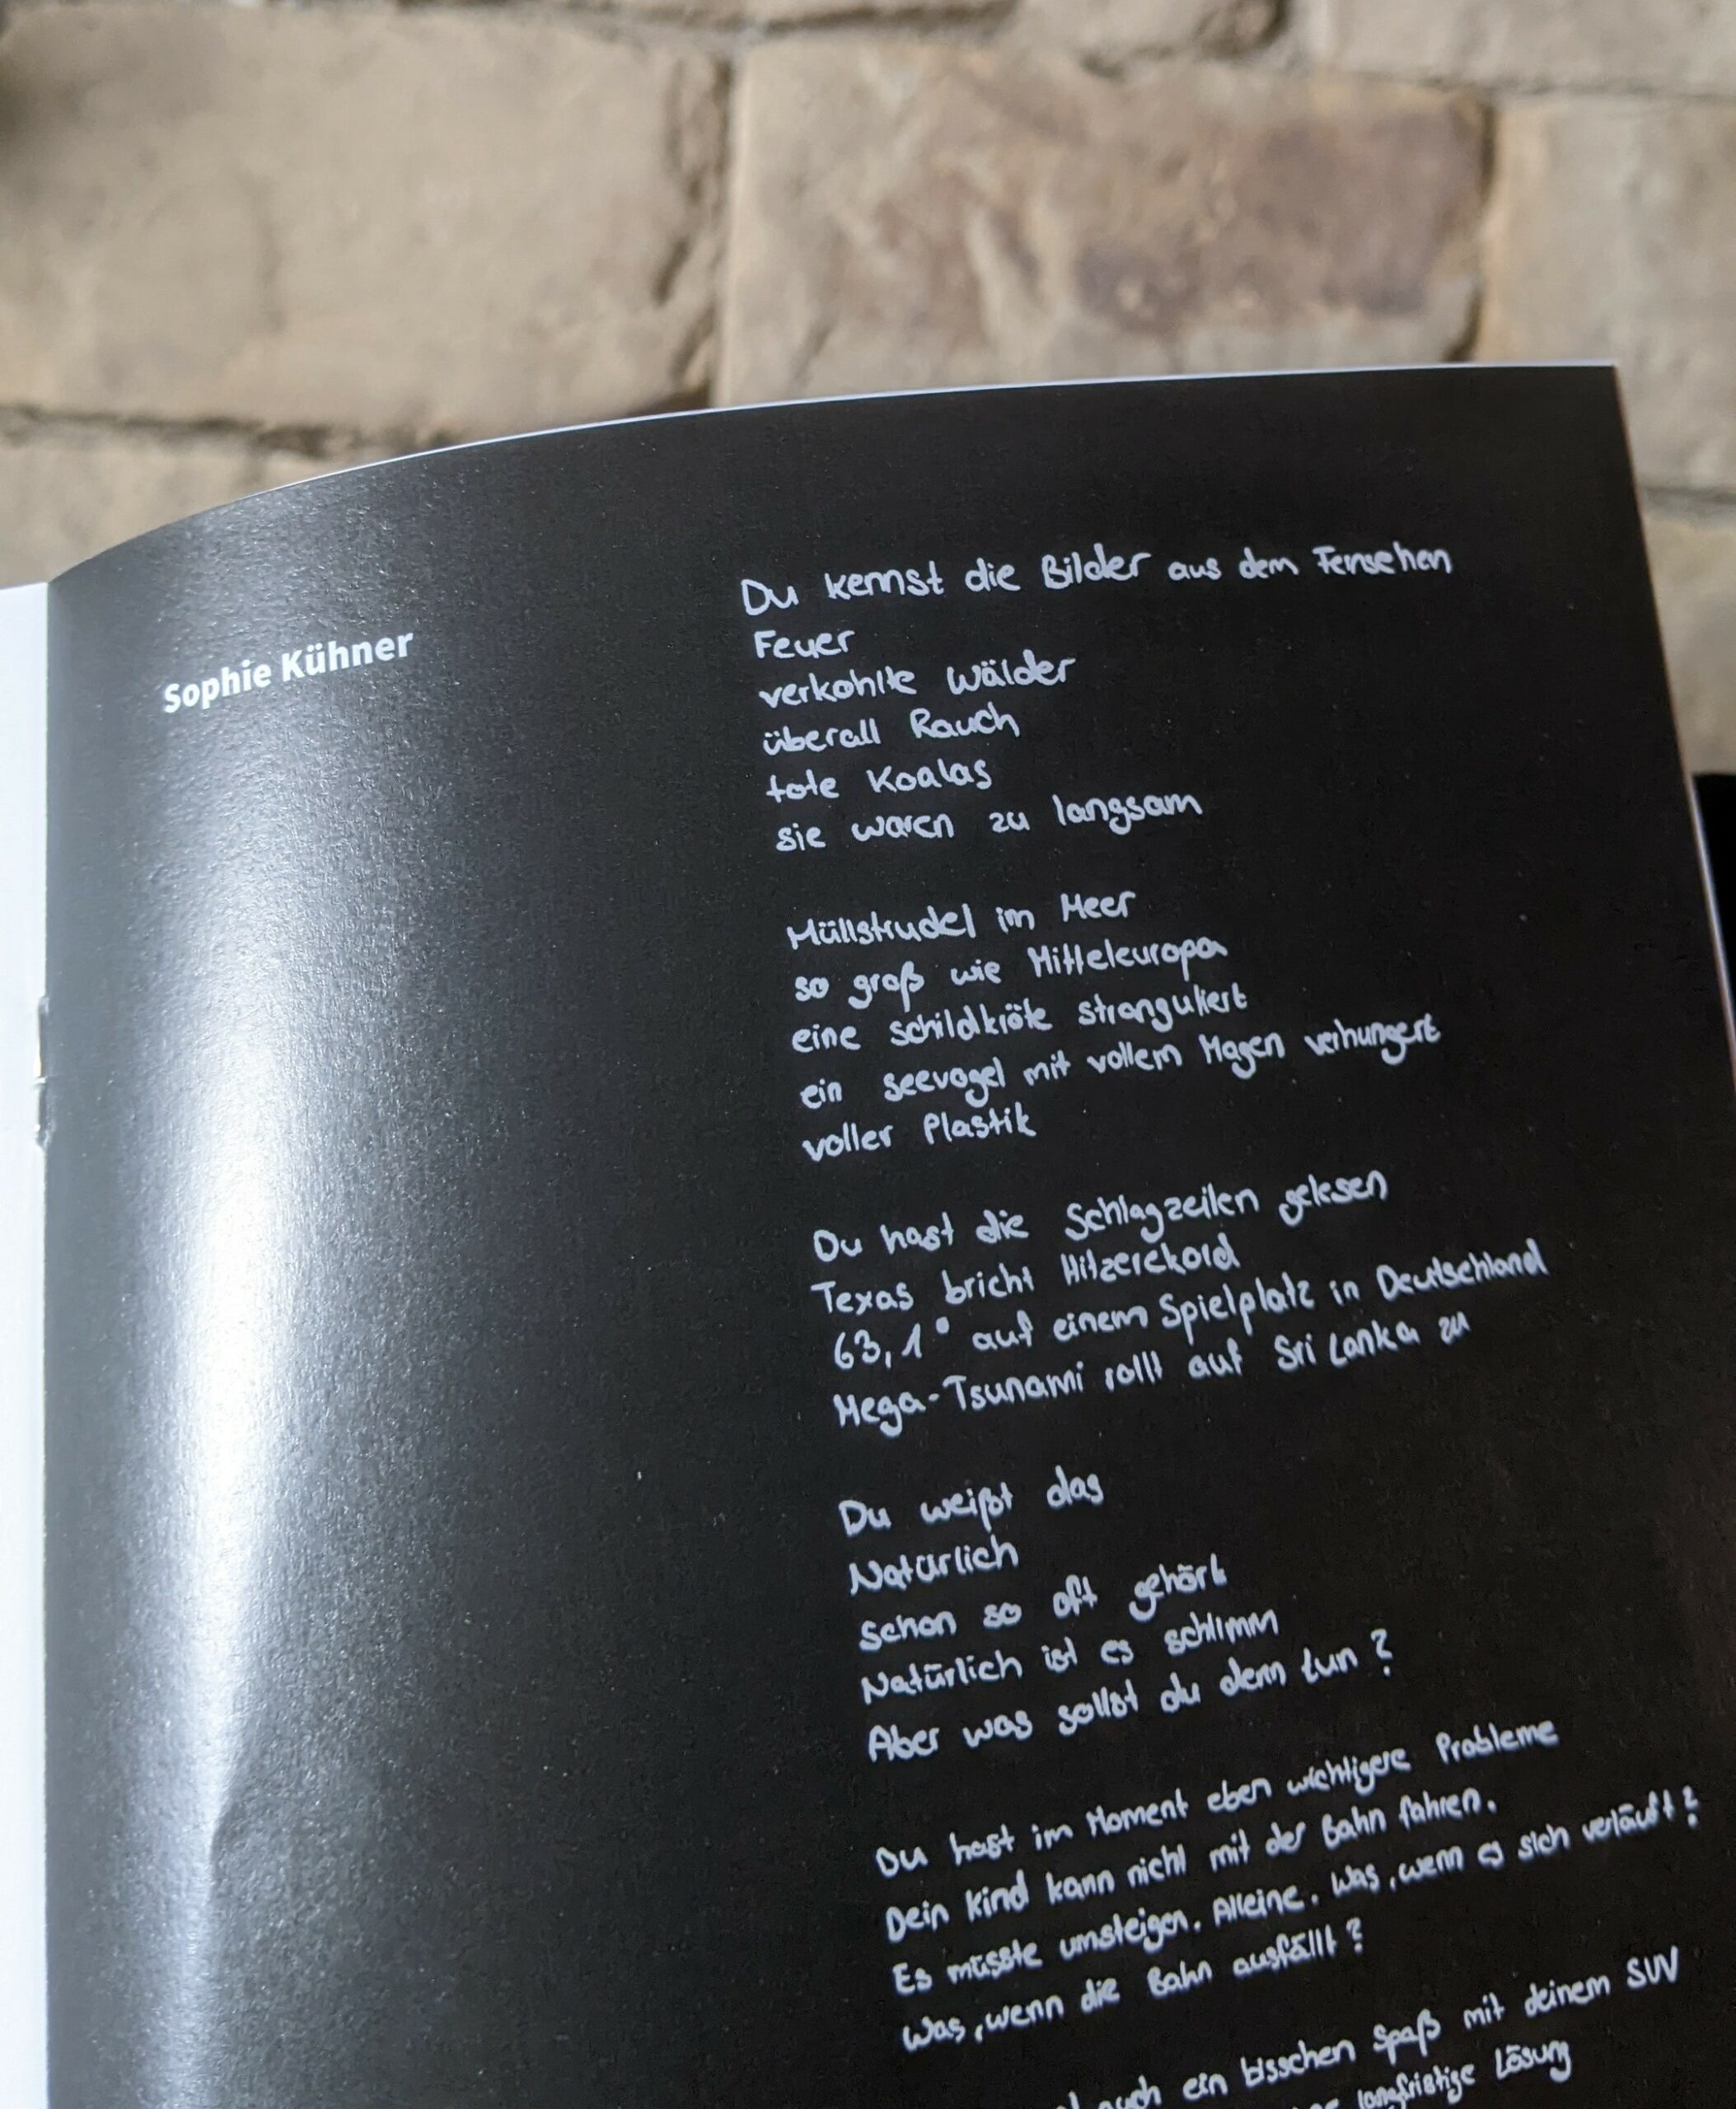 Sophie Kühner
Du kennst die Bilder aus dem Fernsehen
Feuer
verkohlte Wälder
überall Rauch
tote Koalas
sie waren zu langsam
Müllstrudel im Meer
so groß wie Mitteleuropa
eine Schildkröte stranguliert
ein Seevogel mit vollem Magen verhungert
voller Plastik
Du hast die Schlagzeilen gelesen
Texas bricht Hitzerekord
63,1° auf einem Spielplatz in Deutschland
Mega-Tsunami rollt auf Sri Lanka zu
Du weißt das
Natürlich
Schon so oft gehört
Natürlich ist es schlimm
Aber was sollst du denn tun?
Du hast im Moment eben wichtigere Probleme
Dein Kind kann nicht mit der Bahn fahren.
Es müsste umsteigen. Alleine. Was, wenn es sich verläuft?
Was, wenn die Bahn ausfällt?
auch ein bisschen Spaß mit deinem SUV
langfristige Lösung